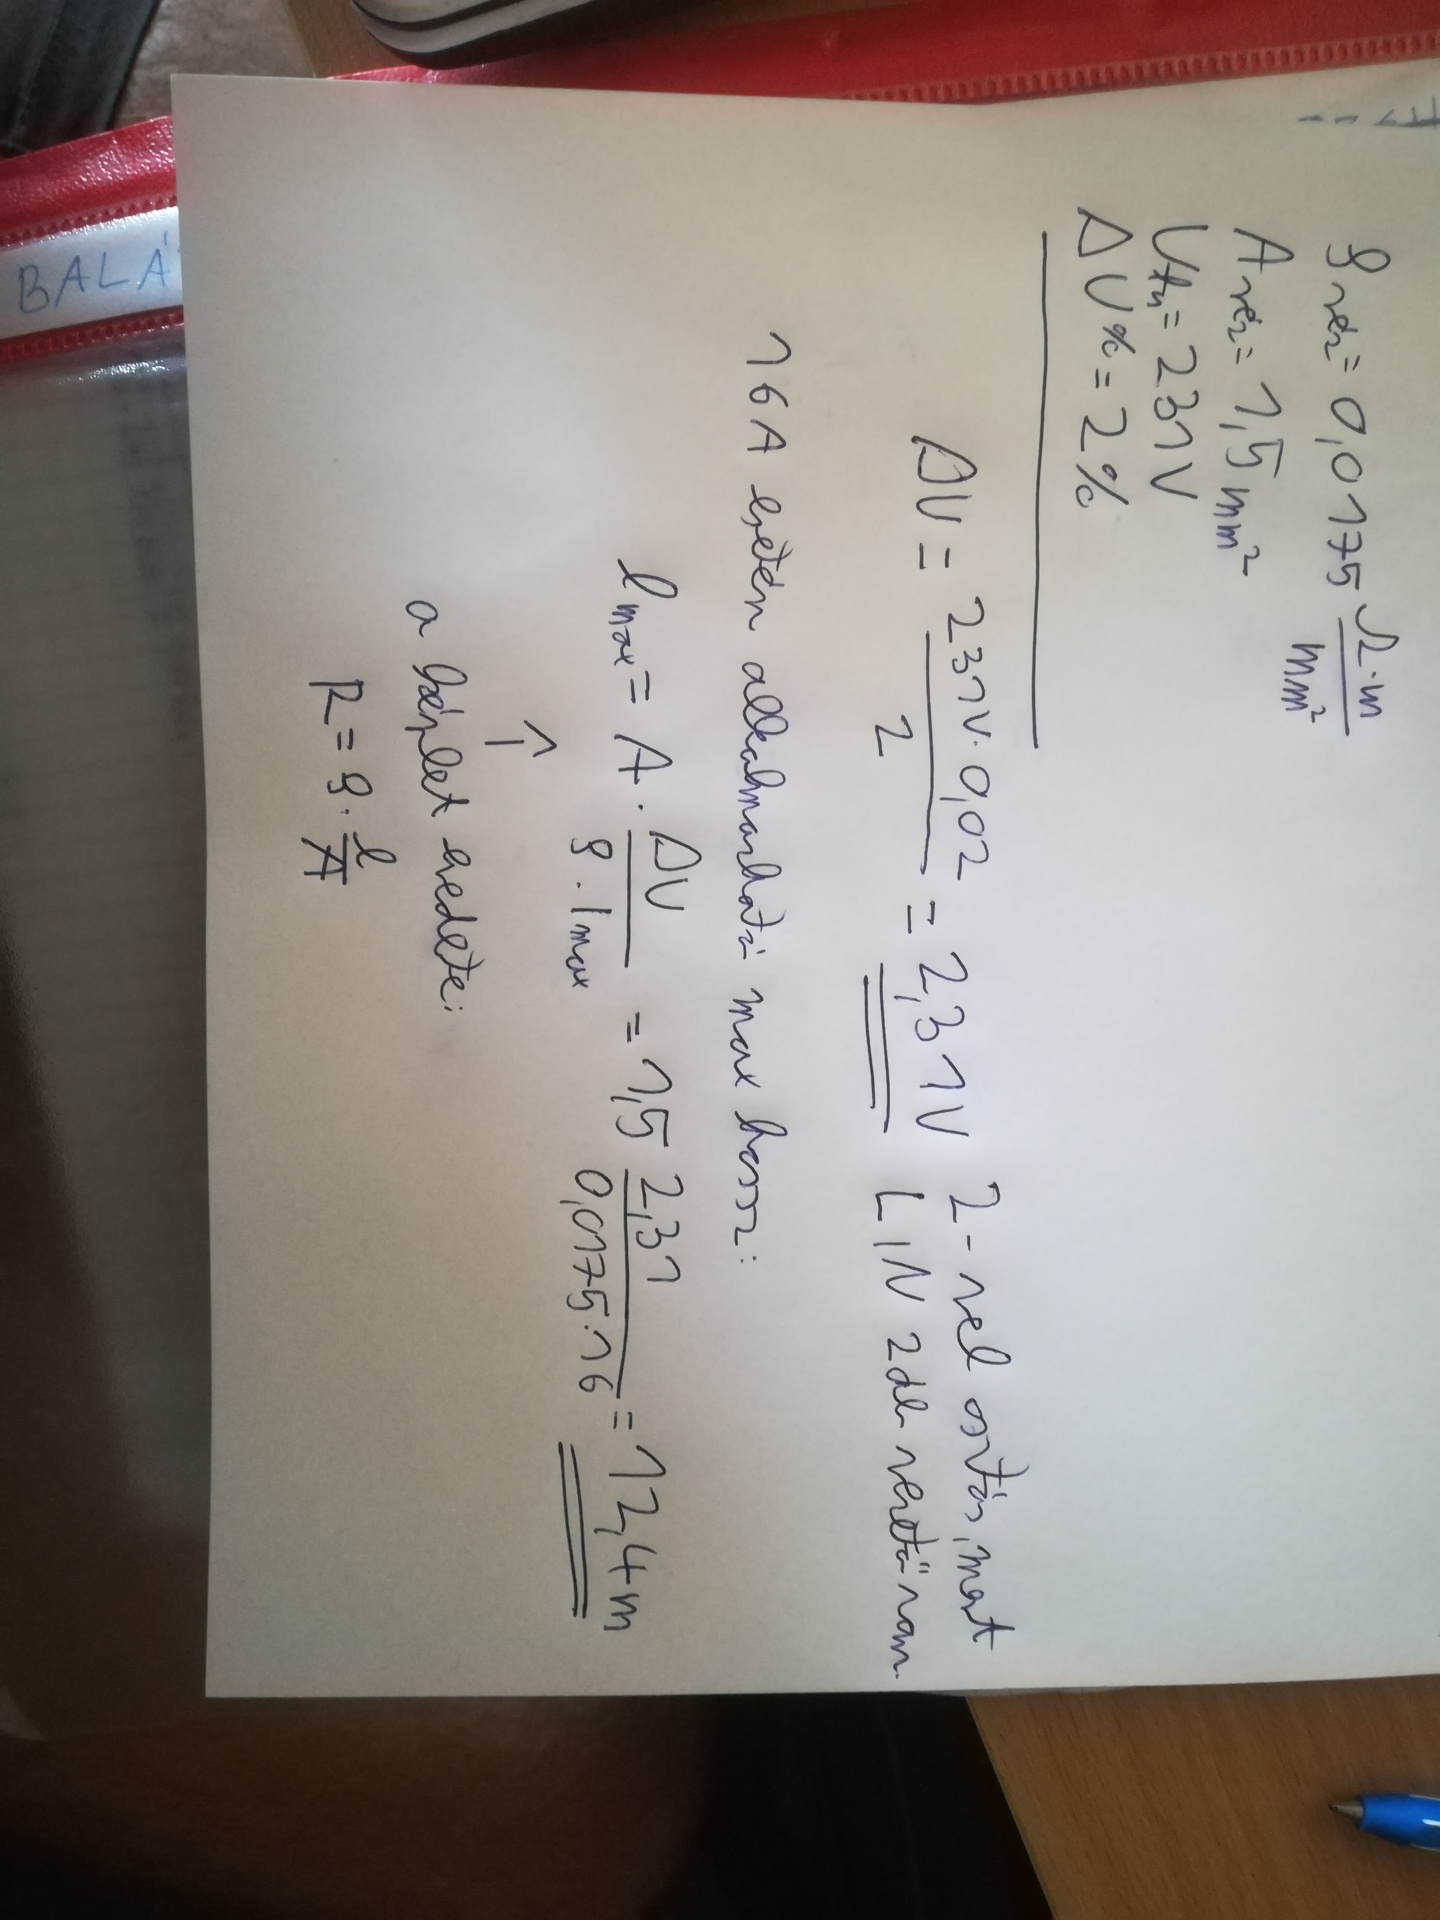 ρ réz = 0,0175 Ω·m/mm²
A réz = 1,5 mm²
Utn = 231V
ΔU% = 2%
ΔU = 231V·0,02/2 = 2,31V 2-vel osztás, mert
LIN 2db vezető van.
16A esetén alkalmazható max hossz:
lmax = A · ΔU/ρ·Imax = 1,5 2,31/0,0175·16 = 12,4m
↑
a képlet eredete:
R = ρ · l/A
BALÁ